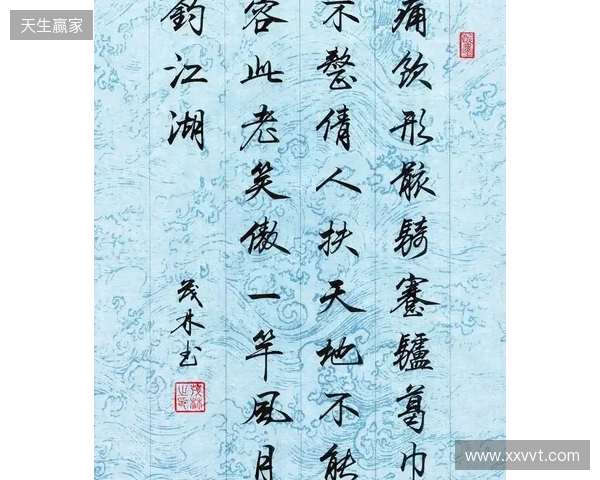 天生赢家
痛饮形骸骑蹇驴葛巾
不整倩人扶天地不能
容此老笑傲一竿风月
钓江湖
茂林书
www.xxvvt.com